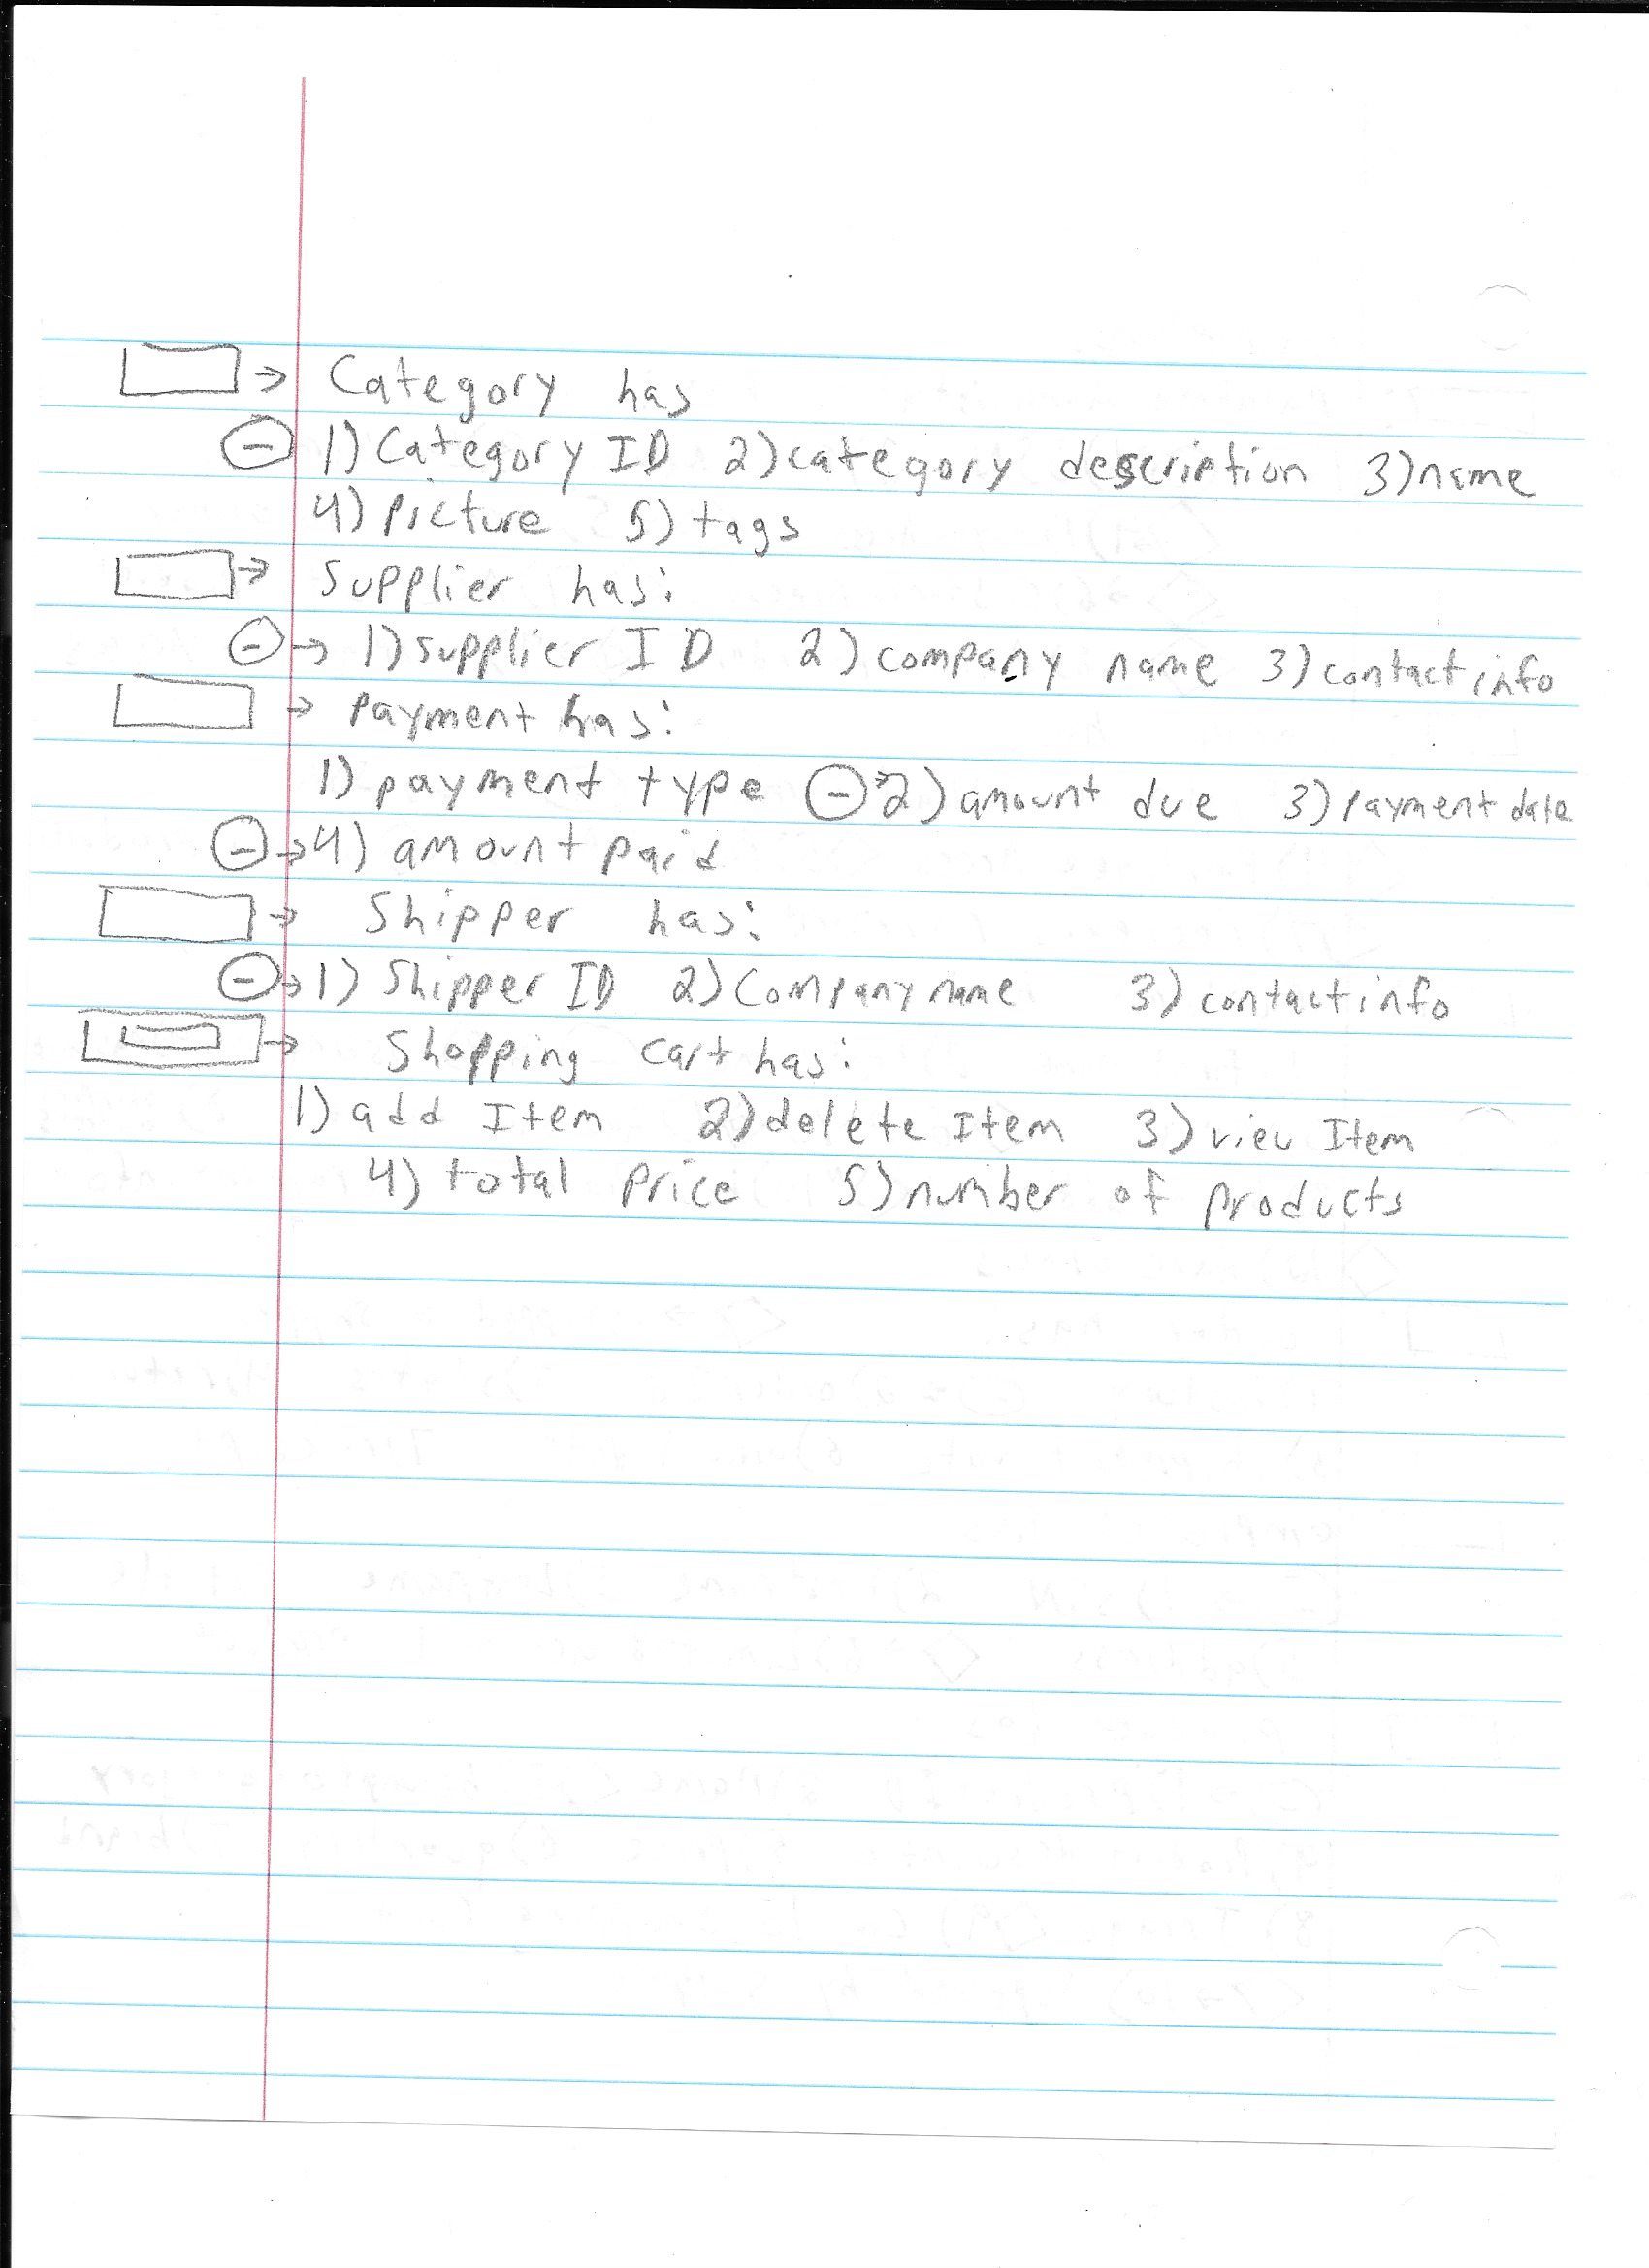 → Category has
1) Category ID 2) category description 3) name
4) picture 5) tags
→ Supplier has:
→ 1) supplier ID 2) company name 3) contact info
→ payment has:
1) payment type → 2) amount due 3) payment date
→ 4) amount paid
→ Shipper has:
→ 1) Shipper ID 2) Company name 3) contact info
→ Shopping cart has:
1) add Item 2) delete Item 3) view Item
4) total price 5) number of products